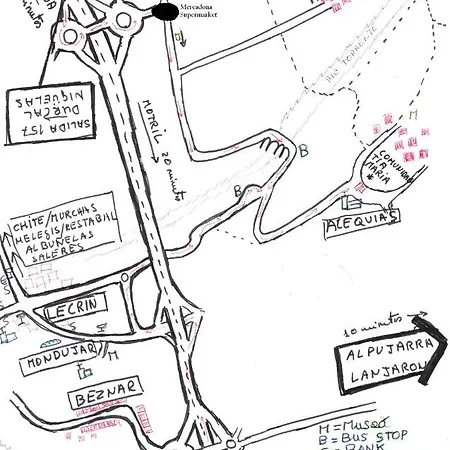 Mercadona
Supermarket
minutos
RIO TORRENTE
SALIDA 157
DURCAL
NIGÜELAS
MOTRIL 20 minutos
M
COMUNIDAD
TIA
MARIA
*
B
B
ACEQUIAS
CHITE/MURCHAS
MELEGIS/RESTABAL
ALBUÑELAS
SALERES
LECRIN
MONDUJAR
M
BEZNAR
10 minutos
ALPUJARRA
LANJARON
M = MUSEO
B = BUS STOP
= BANK